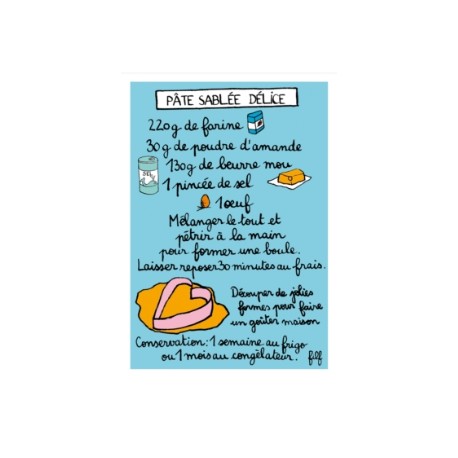 PÂTE SABLÉE DÉLICE
220g de farine
30g de poudre d'amande
130g de beurre mou
SEL
1 pincée de sel
1 œuf
Mélanger le tout et
pétrir à la main
pour former une boule.
Laisser reposer 30 minutes au frais.
Découper de jolies
formes pour faire
un goûter maison
Conservation : 1 semaine au frigo
ou 1 mois au congélateur.